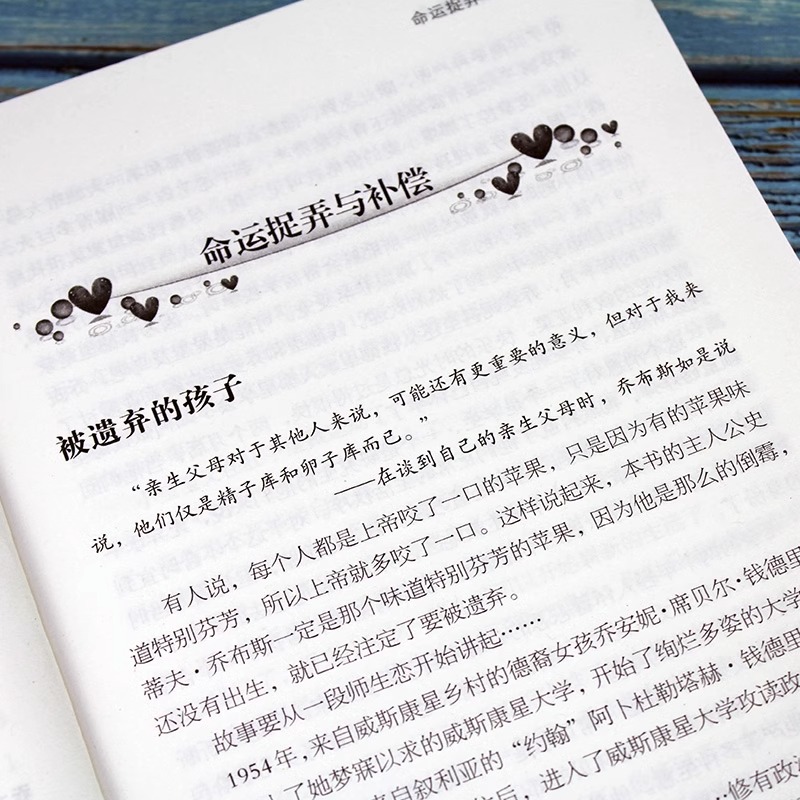 命运捉弄
命运捉弄与补偿
被遗弃的孩子
“亲生父母对于其他人来说，可能还有更重要的意义，但对于我来
说，他们仅是精子库和卵子库而已。”
——在谈到自己的亲生父母时，乔布斯如是说
有人说，每个人都是上帝咬了一口的苹果，只是因为有的苹果味
道特别芬芳，所以上帝就多咬了一口。这样说起来，本书的主人公史
蒂夫·乔布斯一定是那个味道特别芬芳的苹果，因为他是那么的倒霉，
还没有出生，就已经注定了要被遗弃。
故事要从一段师生恋开始讲起……
1954年，来自威斯康星乡村的德裔女孩乔安妮·席贝尔·钱德里
了她梦寐以求的威斯康星大学，开始了绚烂多姿的大学
来自叙利亚的“约翰”阿卜杜勒塔赫·钱德里
后，进入了威斯康星大学攻读政
修有政治